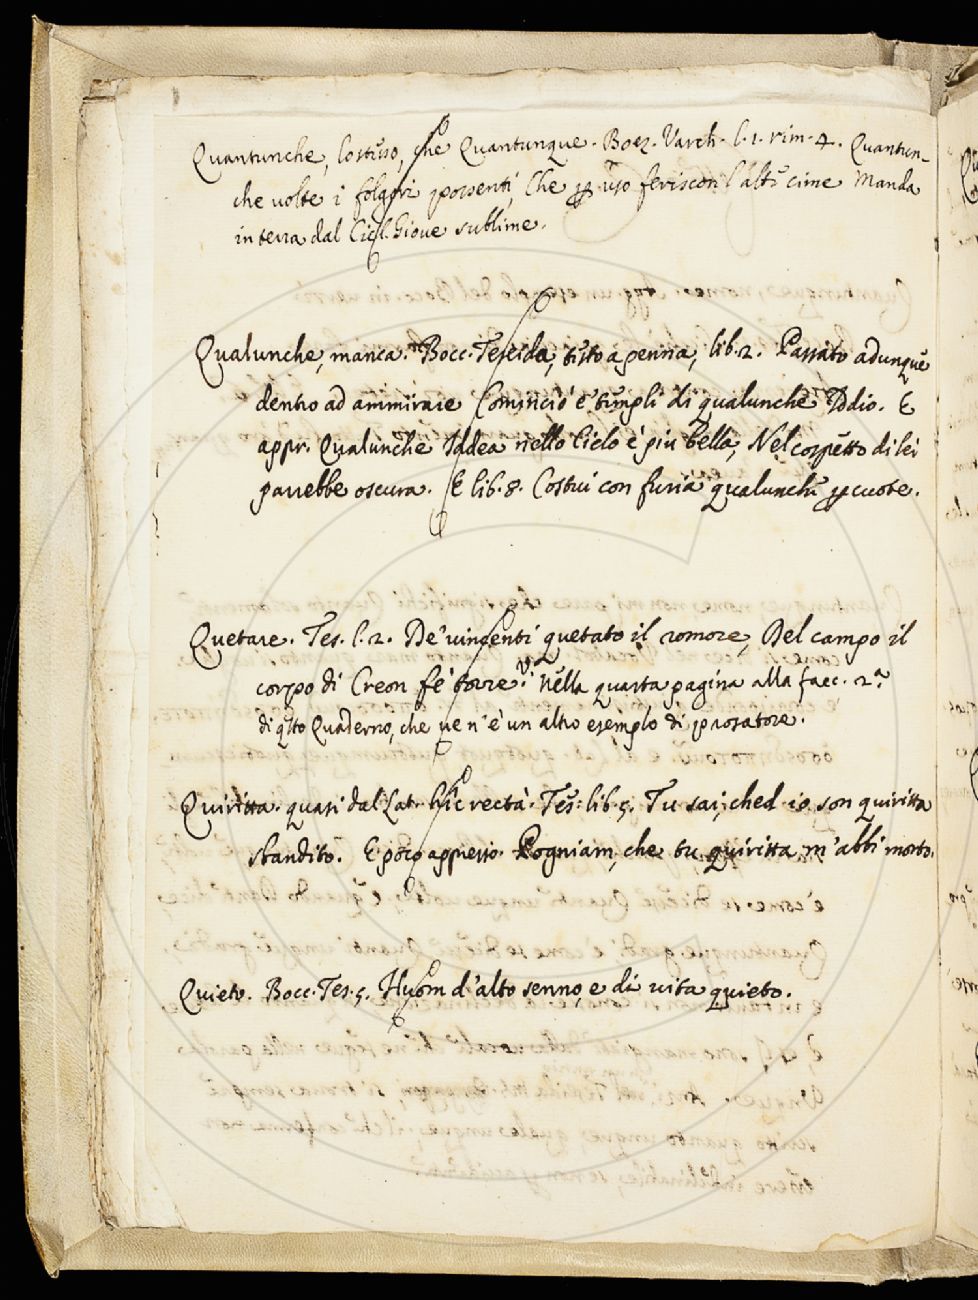 Quantunche, lo stesso, che Quantunque. Boez. Varch. l. 1. rim. 4. Quantun-
che volte i folgori possenti, Che p uso feriscon l'alte cime Manda
in terra dal Ciel Giove sublime.
Qualunche, manca. Bocc. Teseida, testo a penna, lib. 2. Passato adunque
dentro ad ammirare Cominciò e' templi di qualunche Iddio. E
appr. Qualunche Iddea nello Cielo è più bella, Nel cospetto di lei
parrebbe oscura. E lib. 8. Costui con furia qualunche pcuote.
Quetare. Tes. l. 2. De' vincenti quetato il romore, Del campo il
corpo di Creon fe' torre. V. nella quarta pagina alla facc. 2.a
di qsto Quaderno, che ve n'è un altro esemplo di prosatore.
Quiritta. quasi dal Lat. hic recta. Tes. lib. 5. Tu sai, ched io son quiritta
sbandito. E poco appresso. Pogniam, che tu quiritta m'abbi morto.
Quieto. Bocc. Tes. 5. Huom d'alto senno, e di vita quieto.